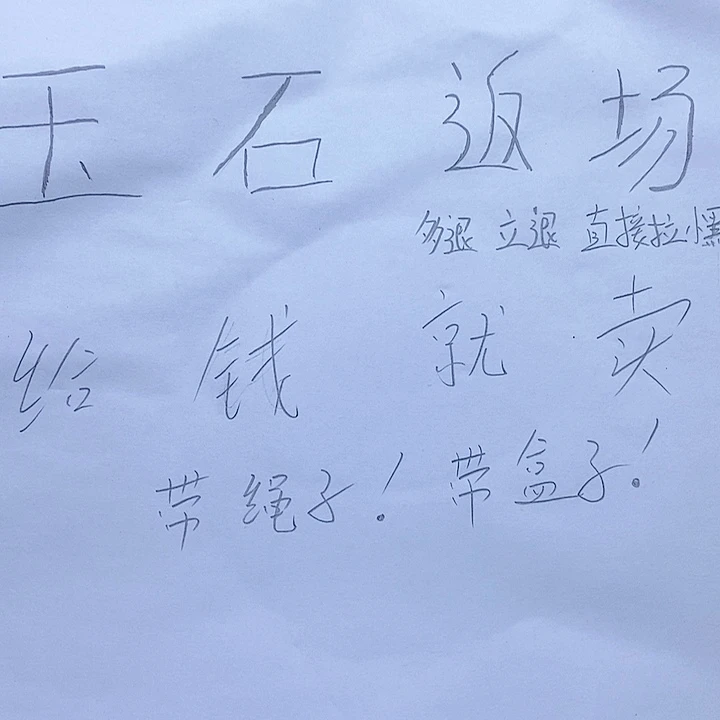 玉石返场
多退 立退 直接拉黑
给钱就卖
带绳子！带盒子！